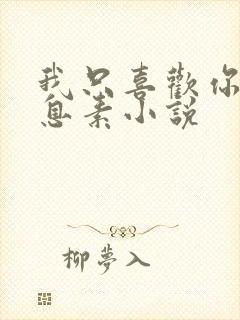 我只喜歡你
息素小說
柳夢入